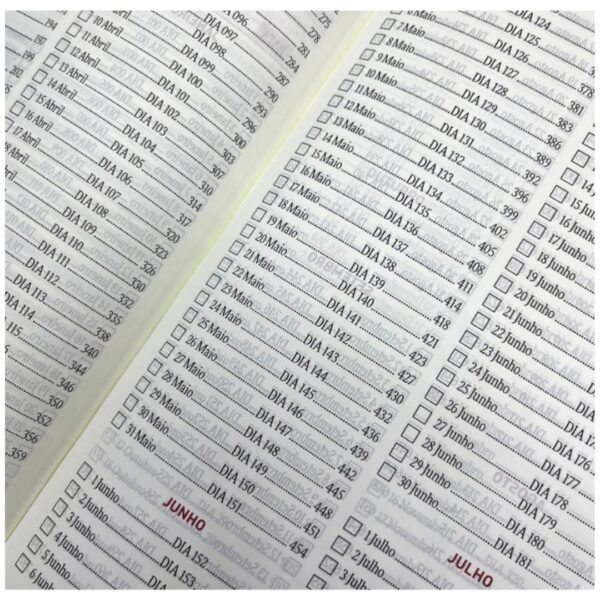 194
197
199
DIA 096
DIA 097
DIA 098
DIA 099
10 Abril DIA 100
11 Abril DIA 101
12 Abril DIA 102
13 Abril DIA 103
14 Abril DIA 104
15 Abril DIA 105
16 Abril DIA 106
17 Abril DIA 107
DIA 108
DIA 109
DIA 110
DIA 111
DIA 112
DIA 113
DIA 114
DIA 115
275
278
281
284
287
290
293
296
300
303
307
317
320
323
326
330
332
335
338
340
344
346
350
352
356
359
DIA 124
DIA 125
6 Maio DIA 126 378
7 Maio DIA 127 381
8 Maio DIA 128 383
9 Maio DIA 129 386
10 Maio DIA 130 389
11 Maio DIA 131 392
12 Maio DIA 132 396
13 Maio DIA 133 399
14 Maio DIA 134 402
15 Maio DIA 135 405
16 Maio DIA 136 408
17 Maio DIA 137 411
18 Maio DIA 138 414
19 Maio DIA 139 418
20 Maio DIA 140 421
21 Maio DIA 141 423
22 Maio DIA 142 427
23 Maio DIA 143 430
24 Maio DIA 144 432
25 Maio DIA 145 436
26 Maio DIA 146 439
27 Maio DIA 147 442
28 Maio DIA 148 445
29 Maio DIA 149 448
30 Maio DIA 150 451
31 Maio DIA 151 454
JUNHO
1 Junho DIA 152
2 Junho DIA 153
3 Junho
4 Junho
5 Junho
6 Junho
16 Junho
17 Junho
18 Junho
19 Junho
20 Junho
21 Junho
22 Junho
23 Junho
24 Junho
25 Junho DIA 176
26 Junho DIA 177
27 Junho DIA 178
28 Junho DIA 179
29 Junho DIA 180
30 Junho DIA 181
JULHO
1 Julho
2 Julho
3 Julho